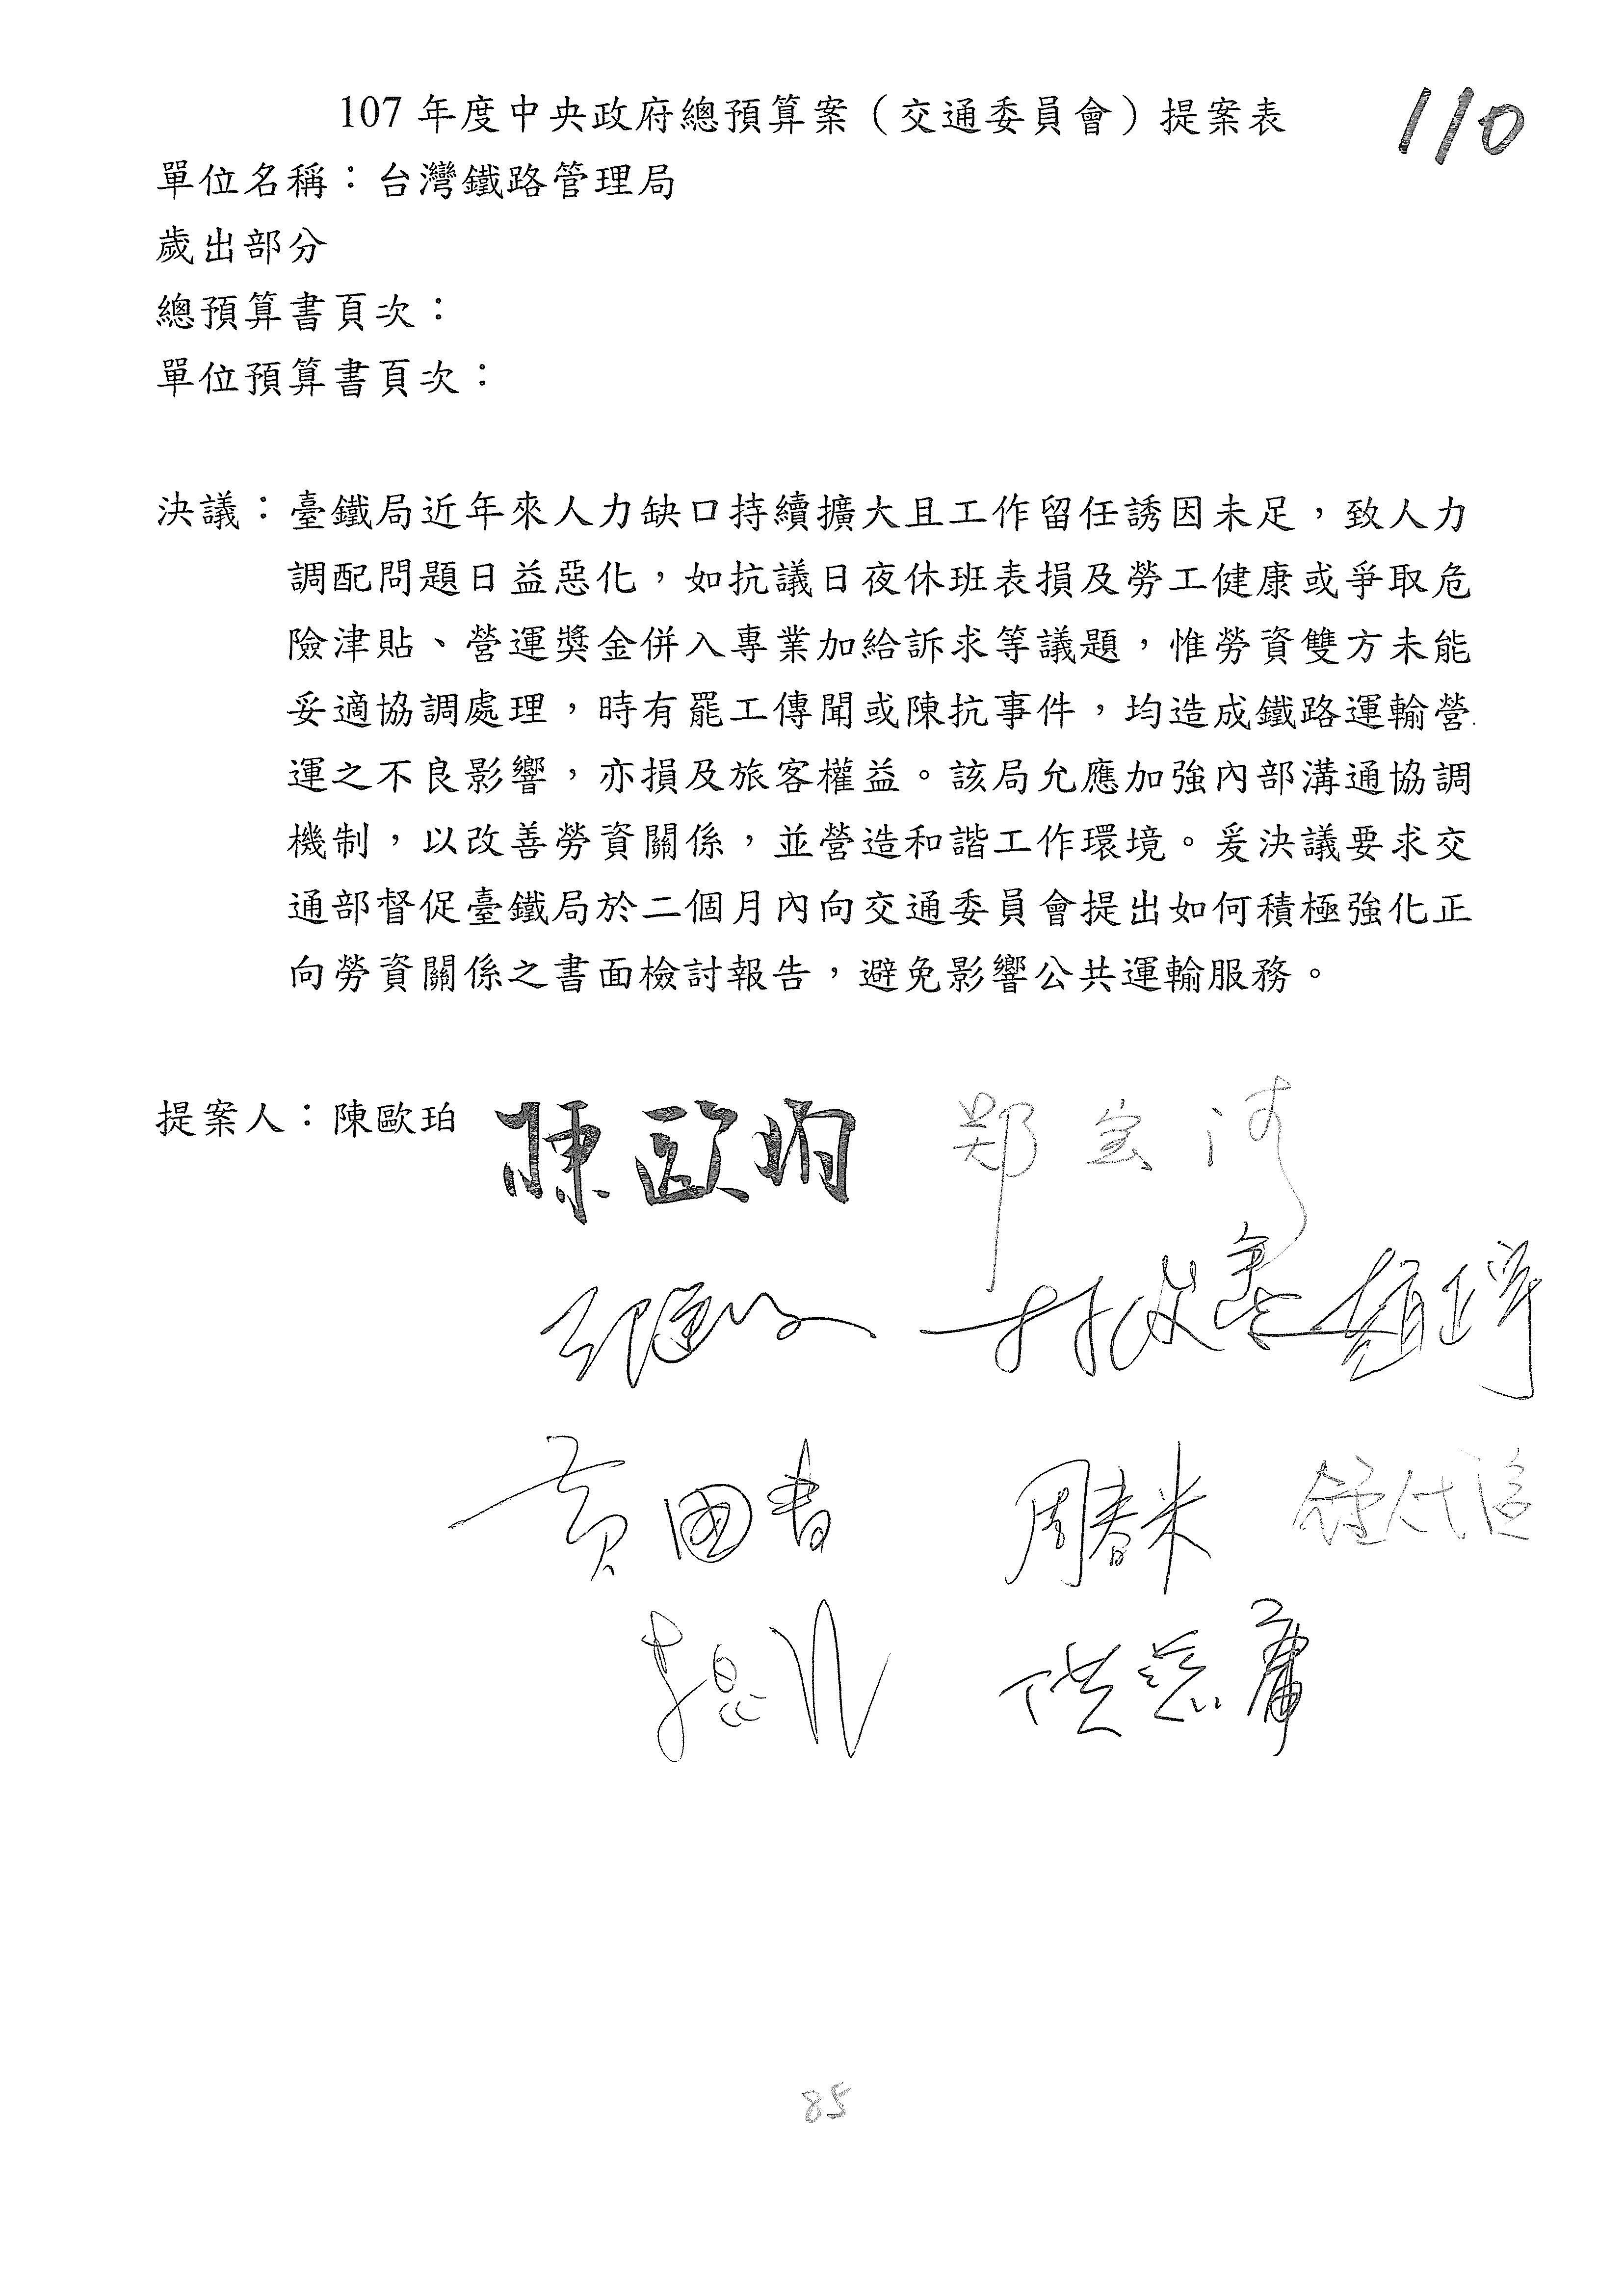 107 年度中央政府總預算案（交通委員會）提案表
110
單位名稱：台灣鐵路管理局
歲出部分
總預算書頁次：
單位預算書頁次：
決議：臺鐵局近年來人力缺口持續擴大且工作留任誘因未足，致人力
調配問題日益惡化，如抗議日夜休班表損及勞工健康或爭取危
險津貼、營運獎金併入專業加給訴求等議題，惟勞資雙方未能
妥適協調處理，時有罷工傳聞或陳抗事件，均造成鐵路運輸營
運之不良影響，亦損及旅客權益。該局允應加強內部溝通協調
機制，以改善勞資關係，並營造和諧工作環境。爰決議要求交
通部督促臺鐵局於二個月內向交通委員會提出如何積極強化正
向勞資關係之書面檢討報告，避免影響公共運輸服務。
提案人：陳歐珀 陳歐珀 鄭宝清
林俊憲 趙正宇
黃國書 周春米
洪慈庸
85